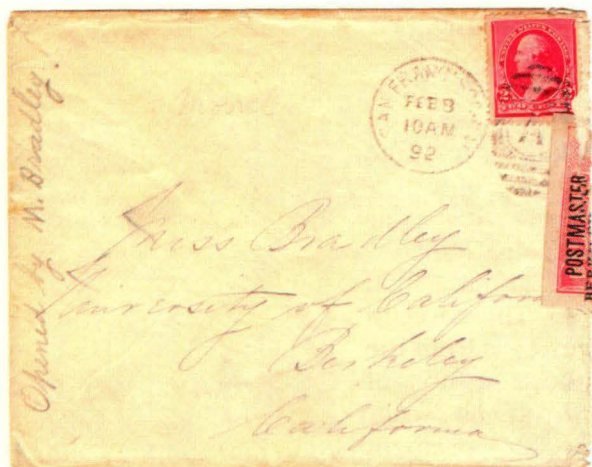 Opened by M. Bradley
SAN FRAN
FEB 8
10 AM
92
POSTMASTER
BERKELEY
Miss Bradley
University of Califor
Berkeley
California